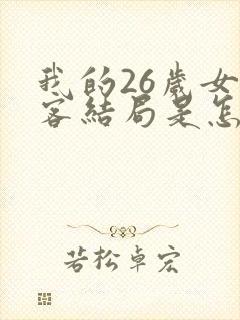 我的26歲女
客結局是怎
若松卓宏